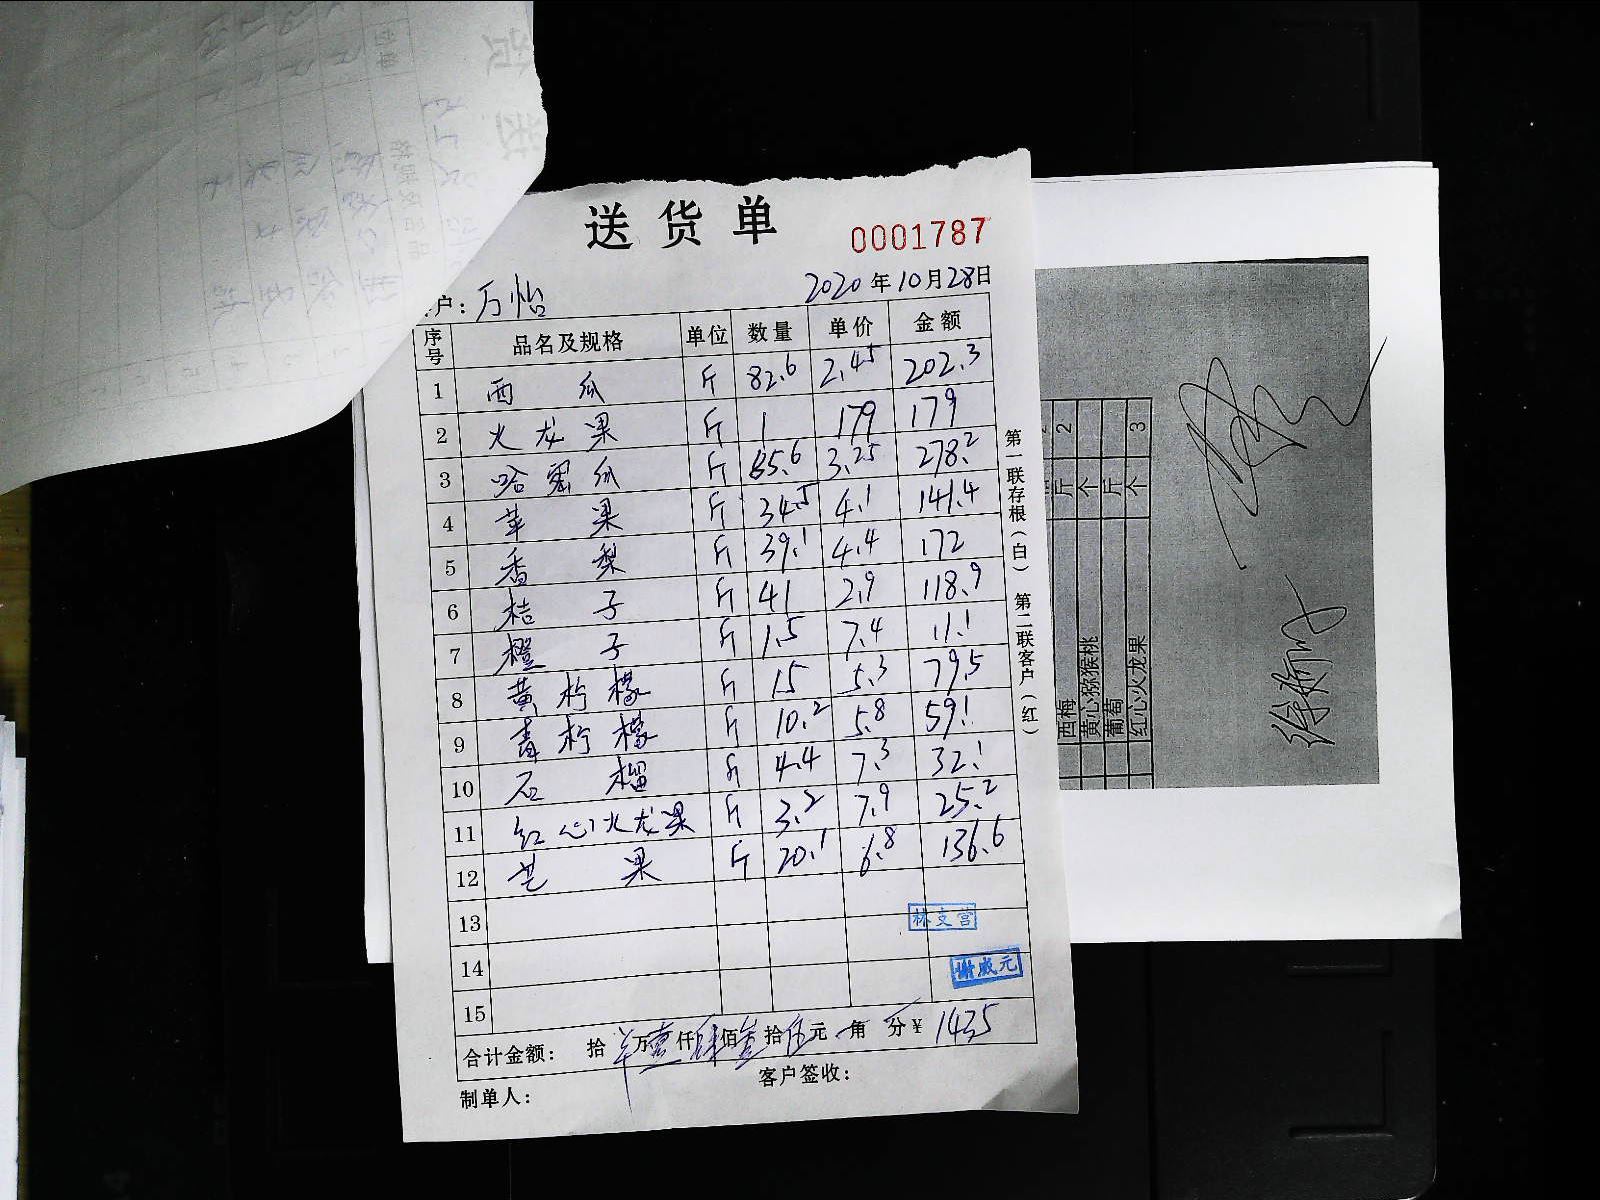 送货单
0001787
户：万怡
2020年10月28日
序号 品名及规格 单位 数量 单价 金额
1 西瓜 斤 82.6 2.45 202.3
2 火龙果 斤 1 179 179
3 哈密瓜 斤 85.6 3.25 278.2
4 苹果 斤 34.5 4.1 141.4
5 香梨 斤 39.1 4.4 172
6 桔子 斤 41 2.9 118.9
7 橙子 斤 1.5 7.4 11.1
8 黄柠檬 斤 15 5.3 79.5
9 青柠檬 斤 10.2 5.8 59.1
10 石榴 斤 4.4 7.3 32.1
11 红心火龙果 斤 3.2 7.9 25.2
12 芒果 斤 20.1 6.8 136.6
13
14
15
林支营
谢威元
合计金额： 拾 万壹仟肆佰 拾伍元 角 分 ¥ 1435
制单人：
客户签收：
第一联存根（白） 第二联客户（红）
斤 2
西梅
黄心猕猴桃 个
葡萄 斤
红心火龙果 个 3
品名及规格